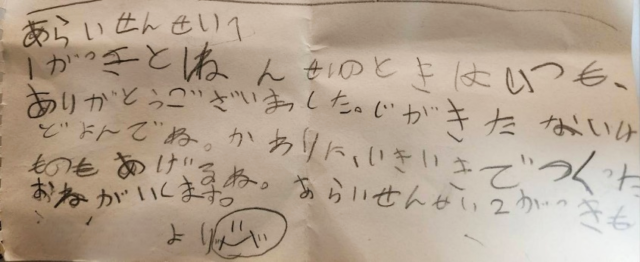 あらいせんせいへ
1がっきと1ねんせいのときはいつも、
ありがとうございました。じがきたないけ
どよんでね。かわりに、いきいきでつくった
ものもあげるね。あらいせんせい2がっきも
おねがいします。
より